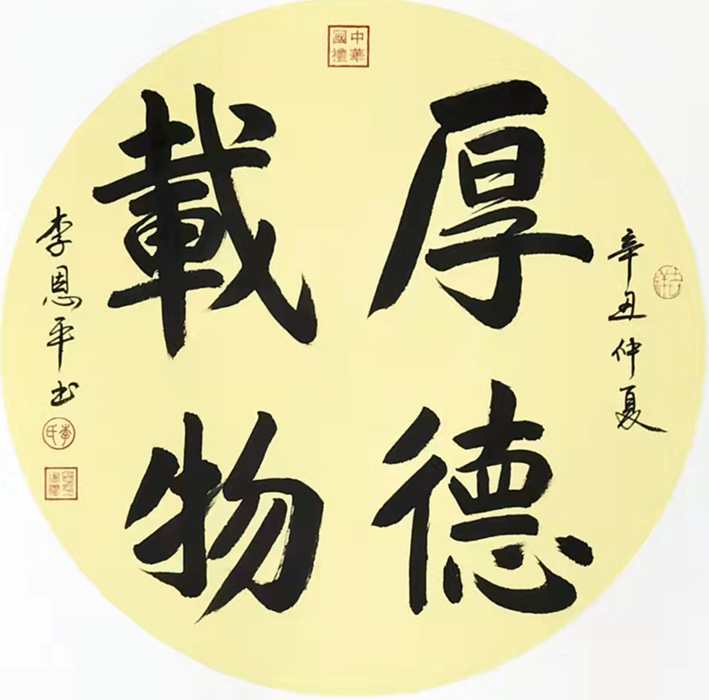 中華
國禮
辛丑仲夏
厚德
載物
李恩平书
李氏